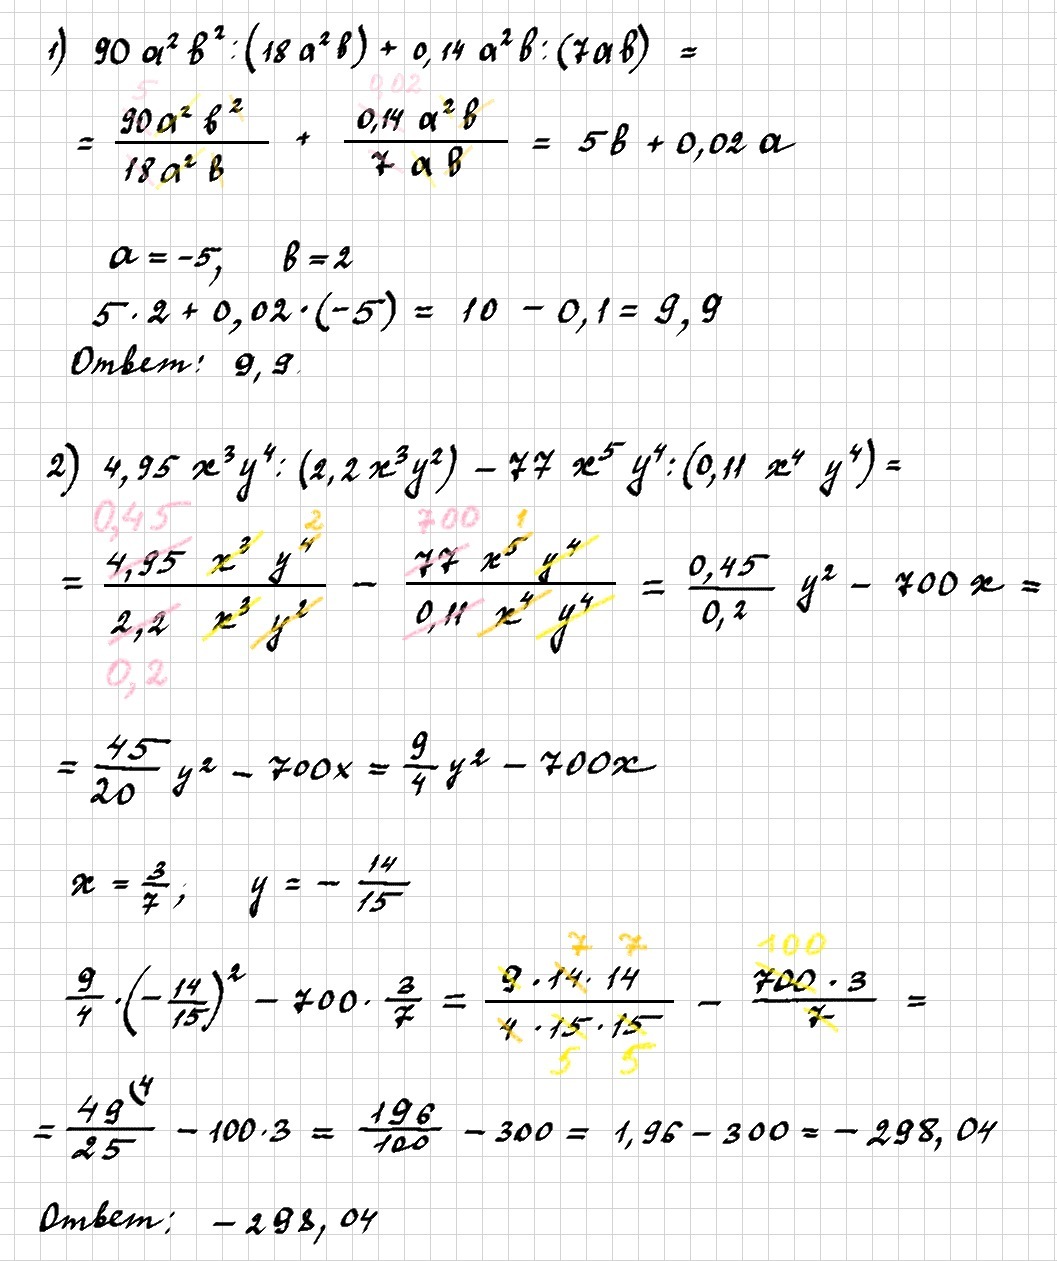 1) 90 a² b² : (18 a² b) + 0,14 a² b : (7ab) =
5 0,02
= 90a² b² / 18a² b + 0,14 a² b / 7 a b = 5b + 0,02 a
a = -5, b = 2
5 · 2 + 0,02 · (-5) = 10 - 0,1 = 9,9
Ответ: 9,9.
2) 4,95 x³y⁴ : (2,2x³y²) - 77 x⁵ y⁴ : (0,11 x⁴ y⁴) =
0,45 2 700 1
= 4,95 x³ y⁴ / 2,2 x³ y² - 77 x⁵ y⁴ / 0,11 x⁴ y⁴ = 0,45 / 0,2 y² - 700 x =
0,2
= 45/20 y² - 700x = 9/4 y² - 700x
x = 3/7; y = - 14/15
7 7 100
9/4 · (-14/15)² - 700 · 3/7 = 9 · 14 · 14 / 4 · 15 · 15 - 700 · 3 / 7 =
5 5
= 49⁽⁴ / 25 - 100·3 = 196/100 - 300 = 1,96 - 300 = - 298,04
Ответ: - 298,04